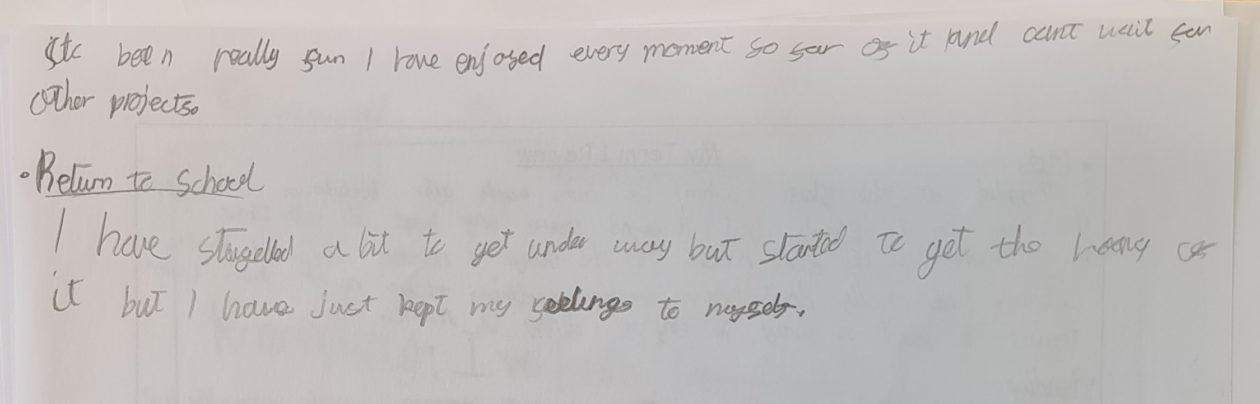 Its been really fun I have enjoyed every moment so far of it and cant wait for
other projects.
• Return to School
I have strugelled a bit to get under way but started to get the hang of
it but I have just kept my feelings to myself.